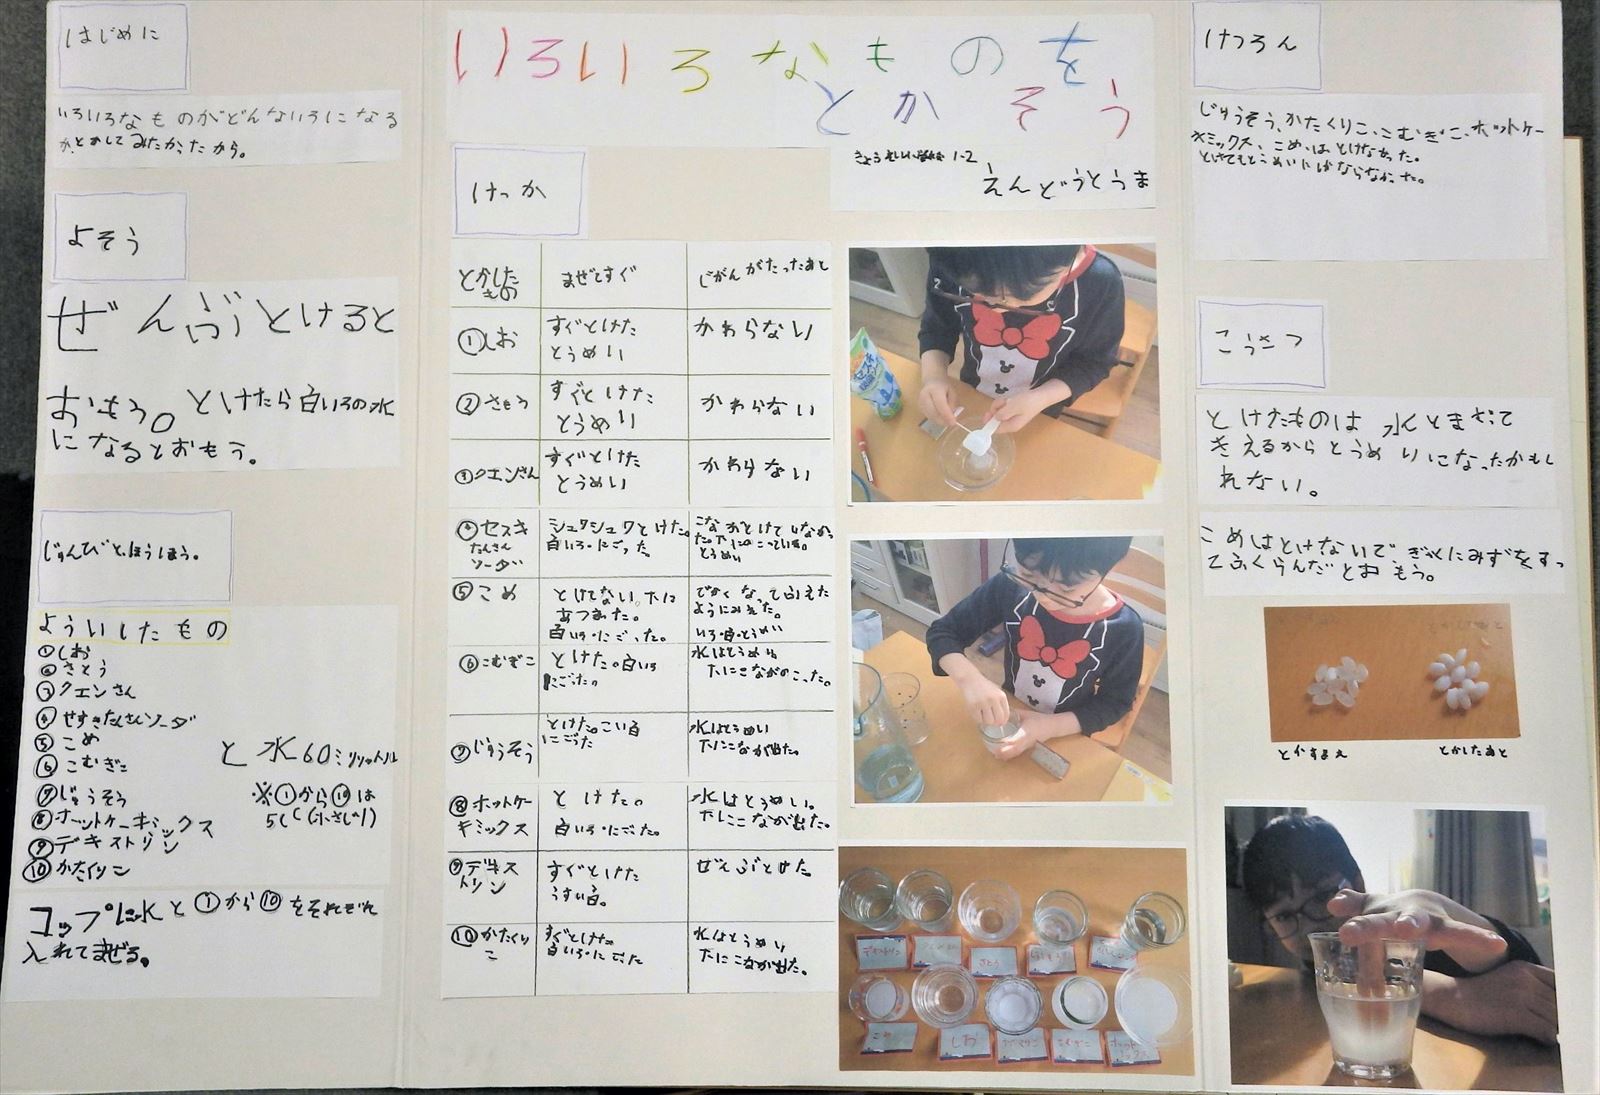 はじめに
いろいろなものがどんないろになる
か、とかしてみたかったから。
よそう
ぜんぶとけると
おもう。とけたら白いろの水
になるとおもう。
じゅんびとほうほう。
よういしたもの
①しお
②さとう
③クエンさん
④せすきたんさんソーダ
⑤こめ
⑥こむぎこ
⑦じゅうそう
⑧ホットケーキミックス
⑨デキストリン
⑩かたくりこ
と水60ミリリットル
※①から⑩は
5CC(小さじ1)
コップに水と①から⑩をそれぞれ
入れてまぜる。
いろいろなものを
とかそう
1-2
えんどうとうま
けっか
とかした
もの
まぜてすぐ
じかんがたったあと
①しお
すぐとけた
とうめい
かわらない
②さとう
すぐとけた
とうめい
かわらない
③クエンさん
すぐとけた
とうめい
かわらない
④セスキ
たんさん
ソーダ
シュワシュワととけた。
白いろ・にごった。
こながとけていなかっ
た。下にのこっている。
とうめい
⑤こめ
とけてない。下に
あつまった。
白いろ・にごった。
でかくなってふえた
ようにみえた。
いろ・白・とうめい
⑥こむぎこ
とけた。白いろ
にごった。
水はとうめい
下にこながのこった。
⑦じゅうそう
とけた。こい白
にごった
水はとうめい
下にこなが出た。
⑧ホットケー
キミックス
とけた。
白いろ・にごった。
水はとうめい。
下にこなが出た。
⑨デキス
トリン
すぐとけた
うすい白。
ぜんぶとけた
⑩かたくり
こ
すぐとけた。
白いろ・にごった
水はとうめい
下にこなが出た。
デキストリン
さとう
こめ
しお
こむぎこ
ホット
ミックス
けつろん
じゅうそう、かたくりこ、こむぎこ、ホットケー
キミックス、こめ、はとけなかった。
とけてもとうめいにはならなかった。
こうさつ
とけたものは水とまざって
きえるからとうめいになったかもし
れない。
こめはとけないで、ぎゃくにみずをすっ
てふくらんだとおもう。
とかすまえ
とかしたあと